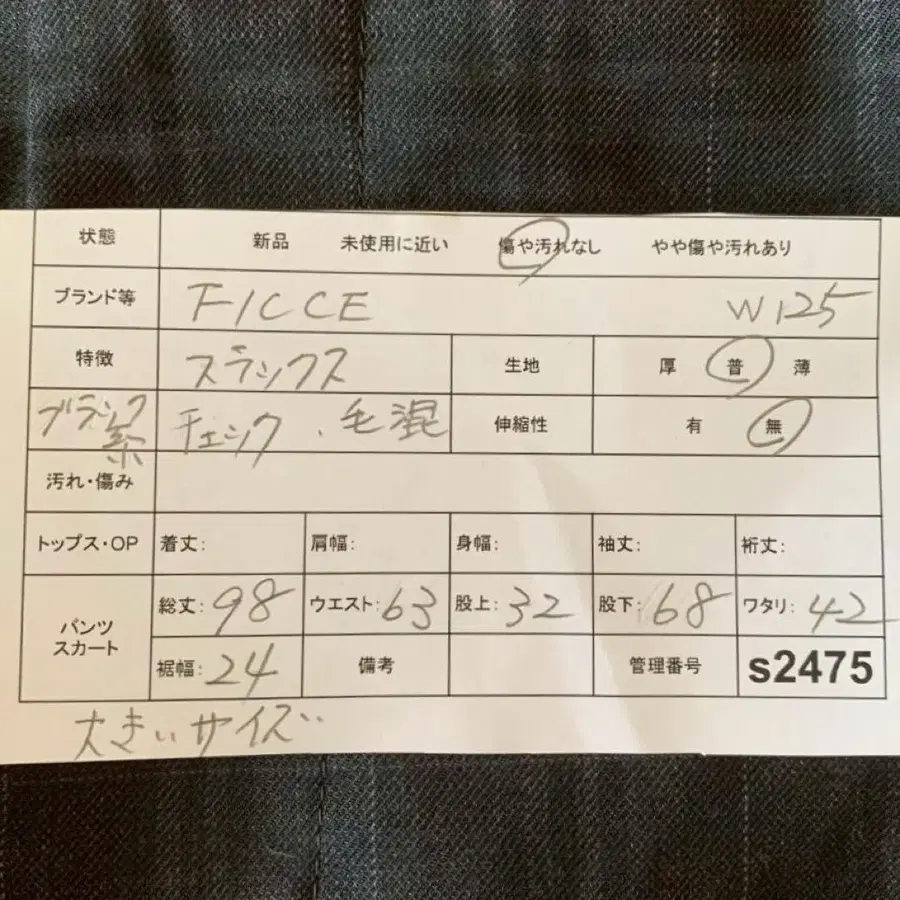 状態 新品 未使用に近い 傷や汚れなし やや傷や汚れあり
ブランド等 FICCE W125
特徴 スラックス 生地 厚 普 薄
ブラック系 チェック、毛混 伸縮性 有 無
汚れ・傷み
トップス・OP 着丈: 肩幅: 身幅: 袖丈: 裄丈:
パンツ スカート 総丈: 98 ウエスト: 63 股上: 32 股下: 68 ワタリ: 42
裾幅: 24 備考 管理番号 s2475
大きいサイズ